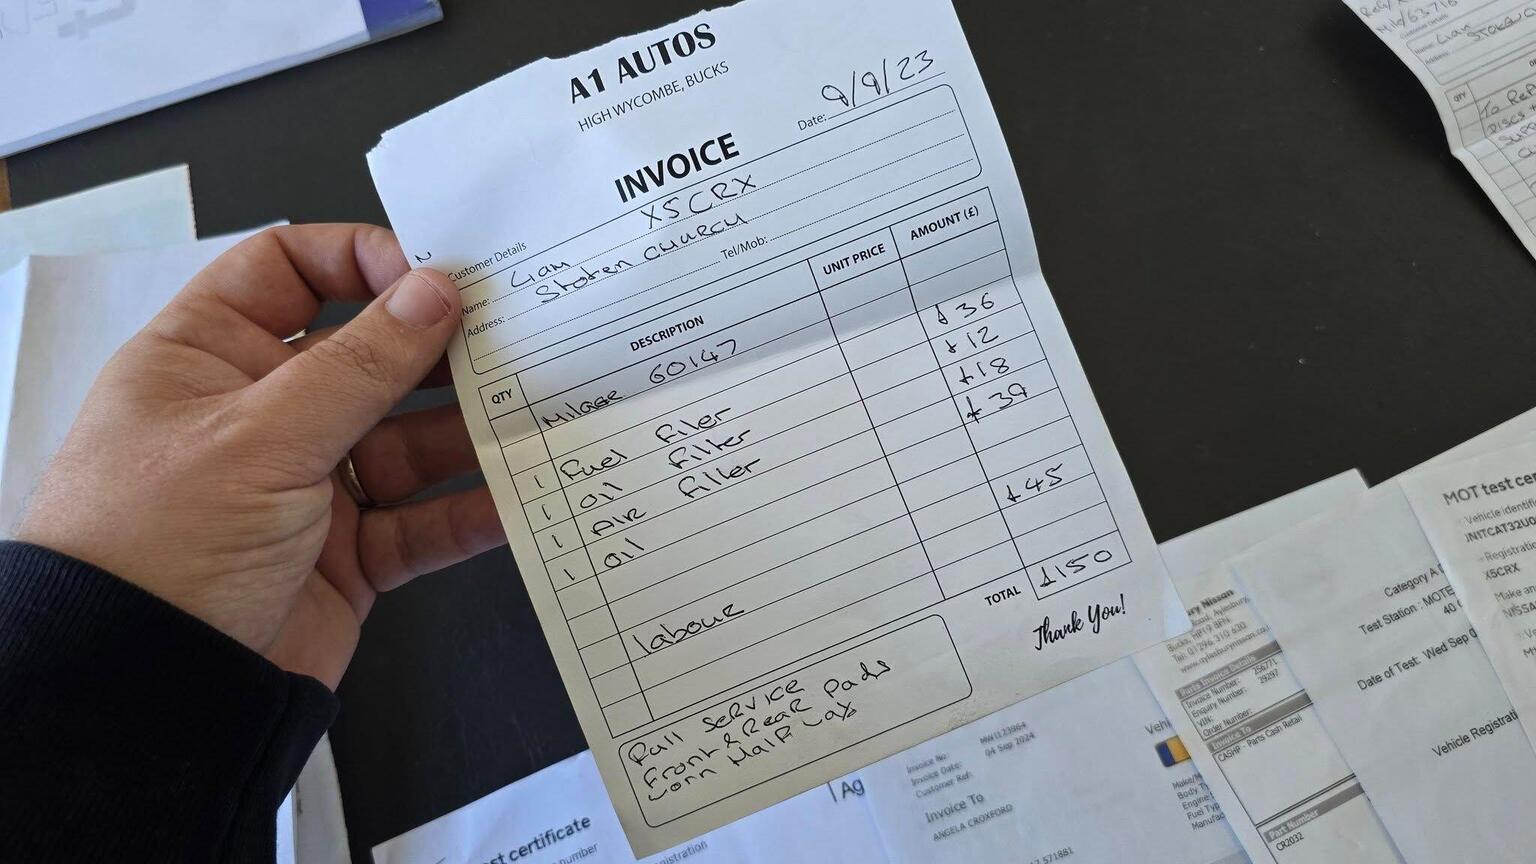 A1 AUTOS
HIGH WYCOMBE, BUCKS
Date: 9/9/23
INVOICE
X5CRX
Customer Details
Name: Liam
Address: Stoken CHURCH
Tel/Mob:
QTY DESCRIPTION UNIT PRICE AMOUNT (£)
Milage 60147
1 Fuel Filer £36
1 oil Filter £12
1 AIR Filler £18
1 oil £39
labour £45
TOTAL £150
Thank You!
Full SERVICE
Front & REAR pads
worn HalF way
MOT test cer
Vehicle identifi
Registration
X5CRX
Make an
NISSA
Category A
Test Station : MOTE
40
Date of Test: Wed Sep 0
Vehicle Registrati
ry Nissan
Road, Aylesbury,
Bucks, HP19 8PN.
Tel: 01296 310 620
Parts Invoice Details
Invoice Number: 256771
Enquiry Number: 29297
VIN:
Order Number:
Invoice To
CASHP - Parts Cash Retail
Part Number
CR2032
Invoice No: MW1123964
Invoice Date: 04 Sep 2024
Customer Ref:
Invoice To
ANGELA CROXFORD
571881
Vehi
Make/M
Body T
Engine
Fuel Typ
Manufac
Ag
st certificate
number
gistration
Customer Details
Name: Liam
Address:
QTY
To REP
DISCS